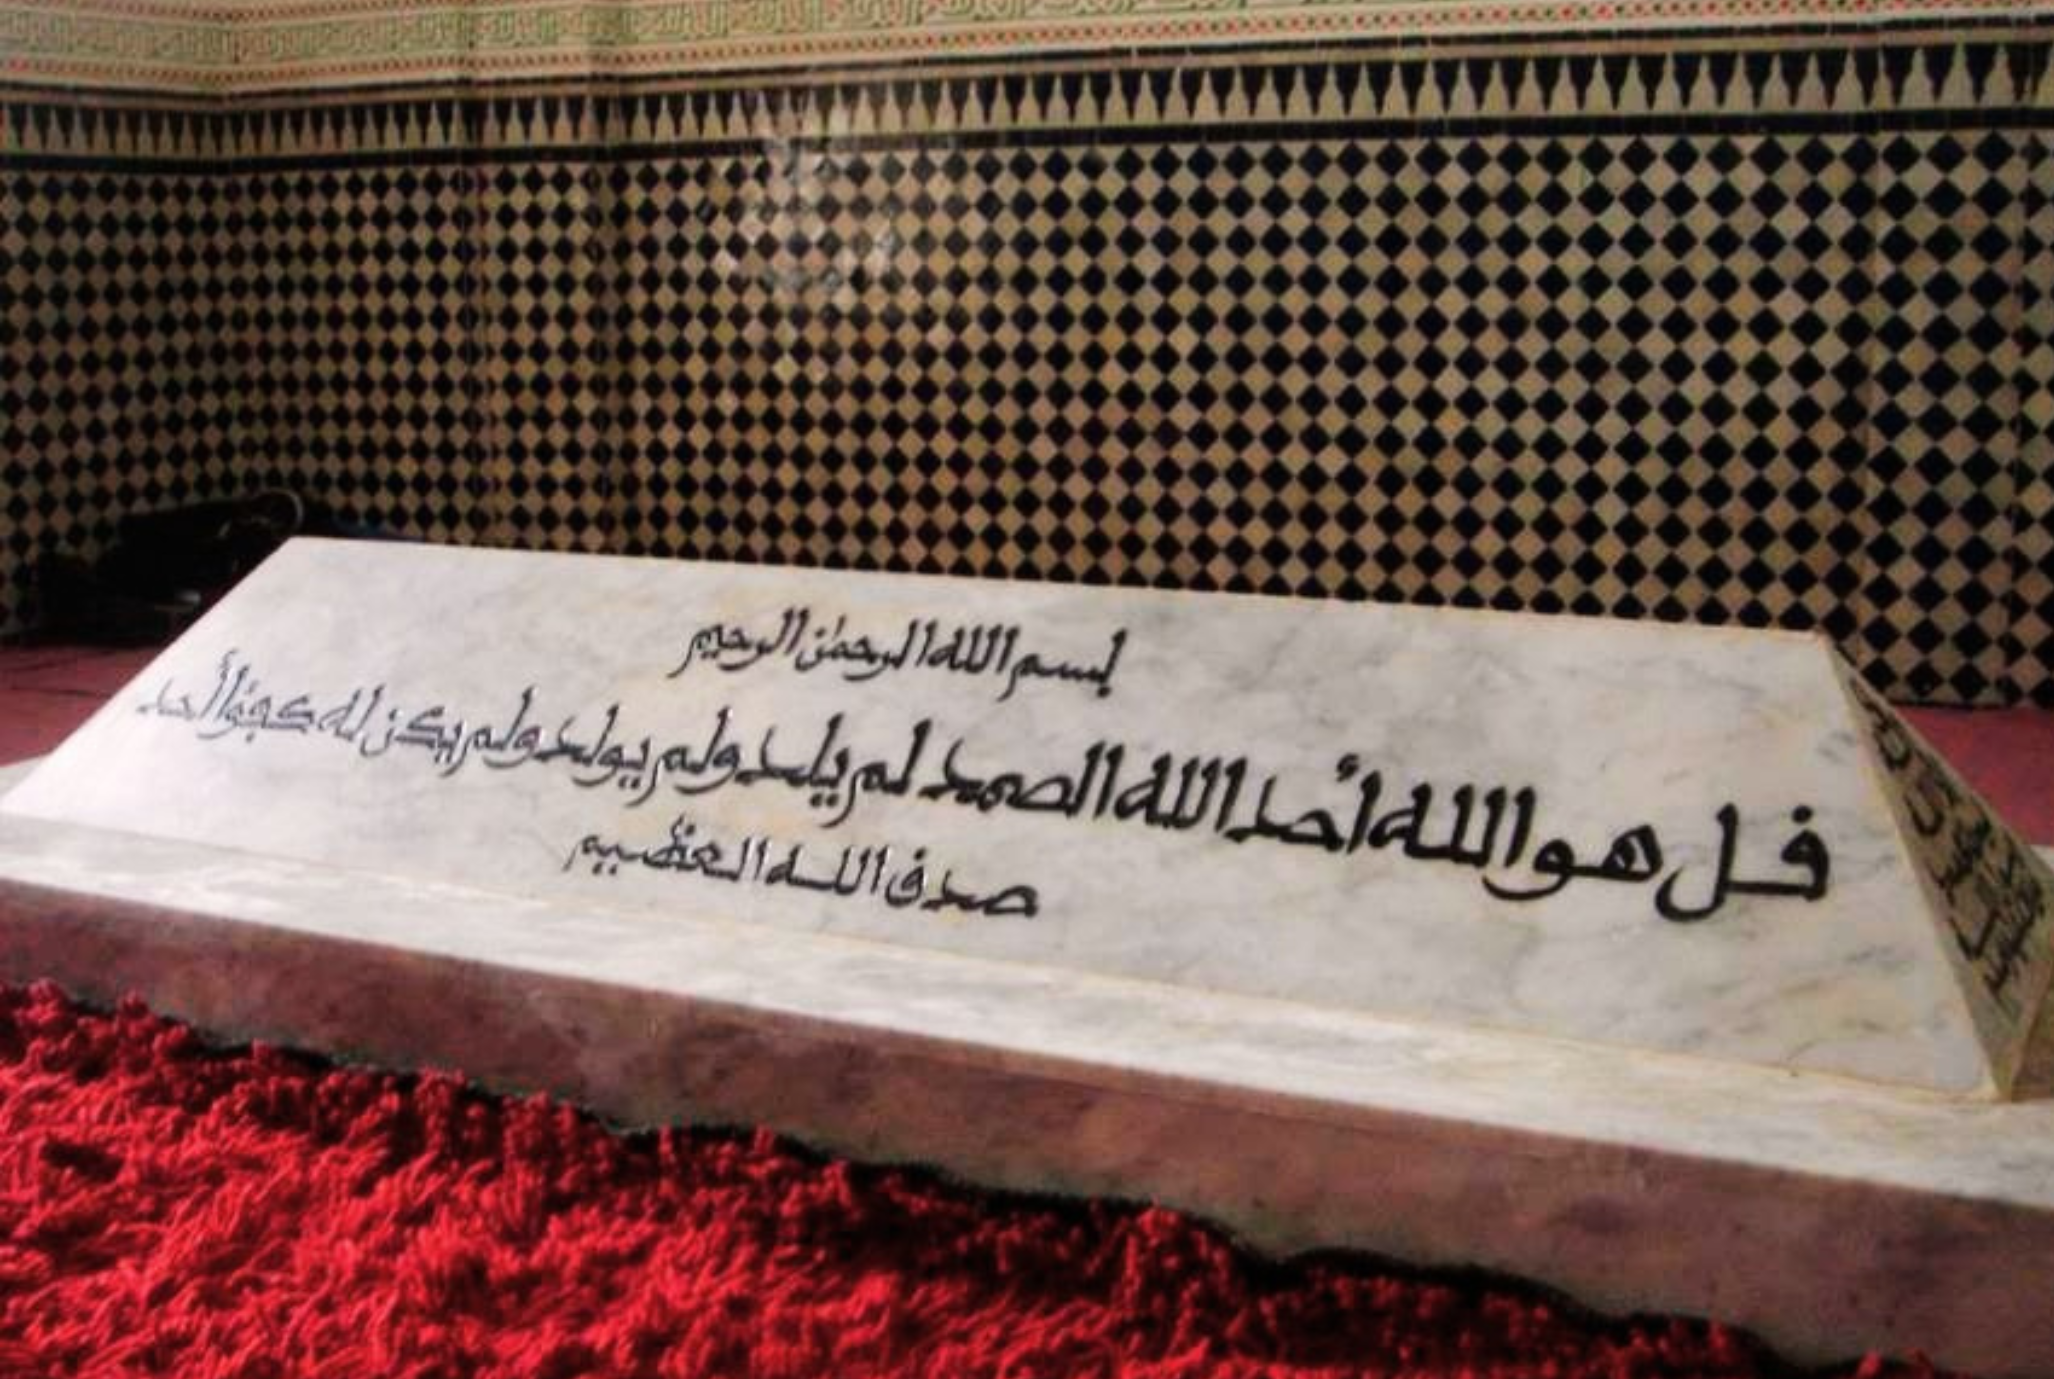 بسم الله الرحمٰن الرحيم
فل هو الله أحد الله الصمد لم يلد ولم يولد ولم يكن له كفؤا أحد
صدق الله العظيم